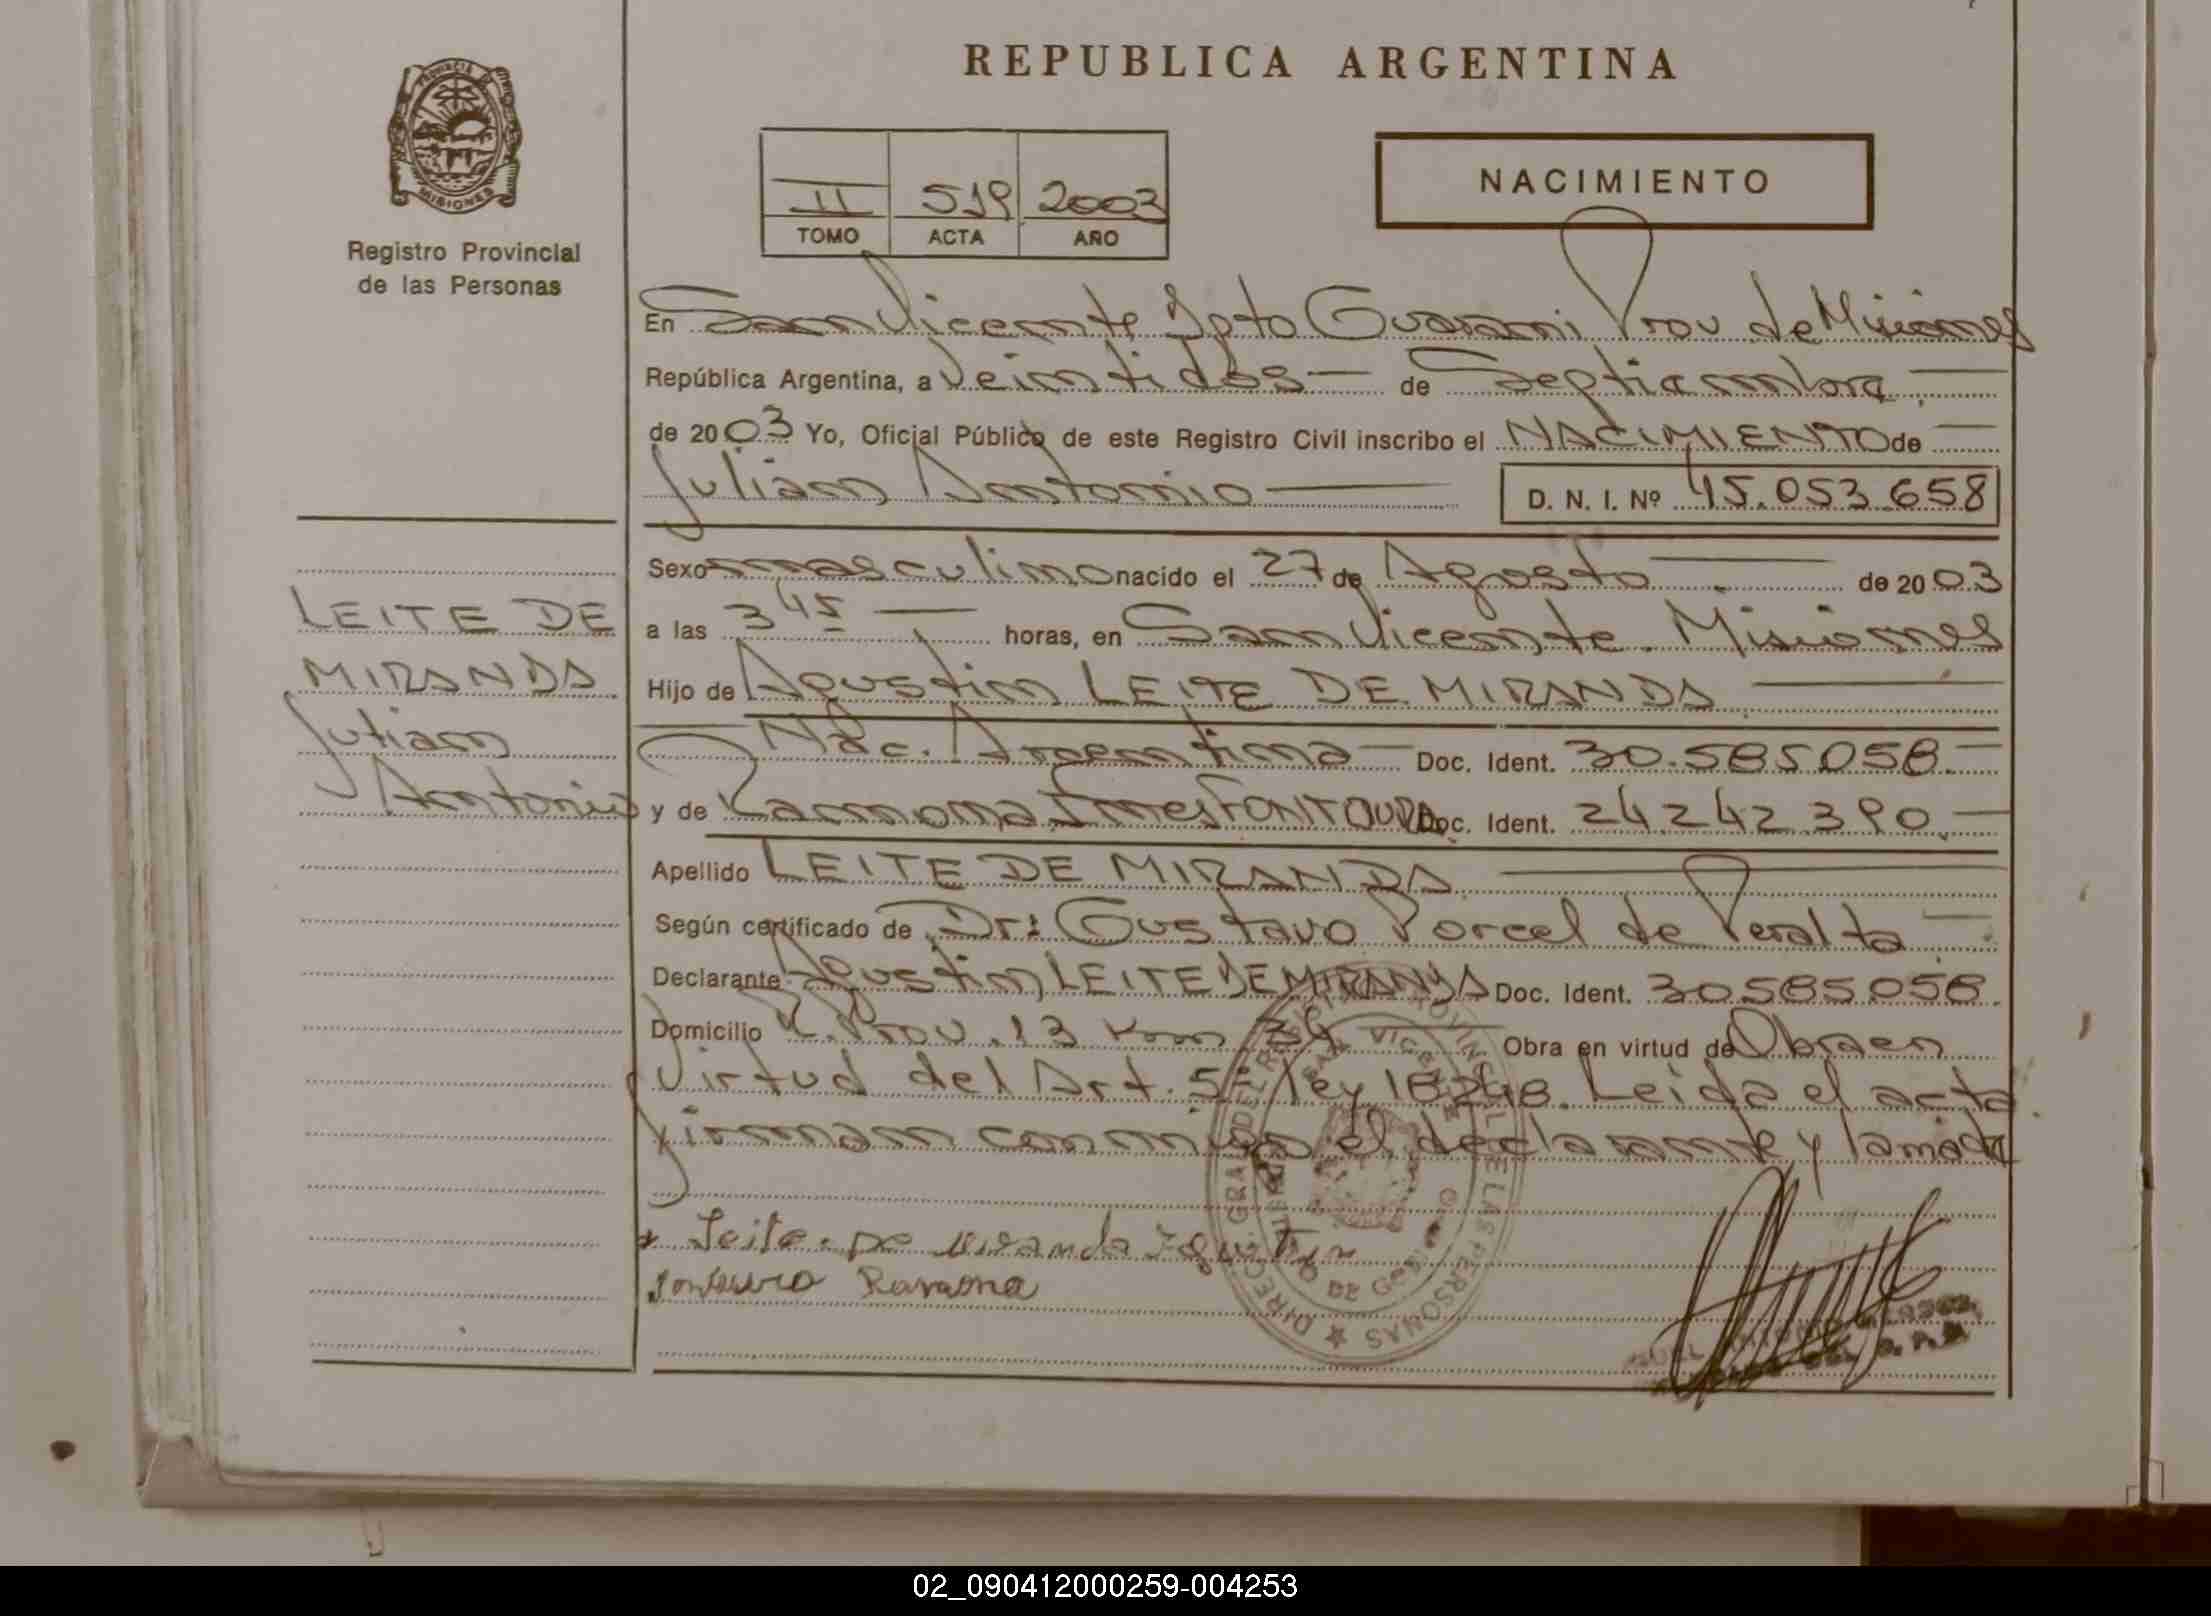 REPUBLICA ARGENTINA
PROVINCIA DE MISIONES
Registro Provincial
de las Personas
II 519 2003
TOMO ACTA AÑO
NACIMIENTO
En San Vicente, Dpto Guarani, Prov de Misiones
República Argentina, a Veintidos de Septiembre
de 2003 Yo, Oficial Público de este Registro Civil inscribo el NACIMIENTO de
Julian Antonio D. N. I. Nº 45.053.658
Sexo masculino nacido el 27 de Agosto de 2003
a las 3 45 horas, en San Vicente. Misiones
Hijo de Agustin LEITE DE MIRANDA
Nac. Argentina Doc. Ident. 30.585058.
y de Ramona Ines FONTOURA Doc. Ident. 24242390.
Apellido LEITE DE MIRANDA
Según certificado de Dr: Gustavo Porcel de Peralta
Declarante Agustin LEITE DE MIRANDA Doc. Ident. 30585058.
Domicilio R. Prov. 13 Km 34 Obra en virtud de Obra en
Virtud del Art. 5º ley 18248. Leida el acta
firman conmigo el declarante y la madre
Leite. De Miranda Agustin
Fontoura Ramona
LEITE DE
MIRANDA
Julian
Antonio
02_090412000259-004253